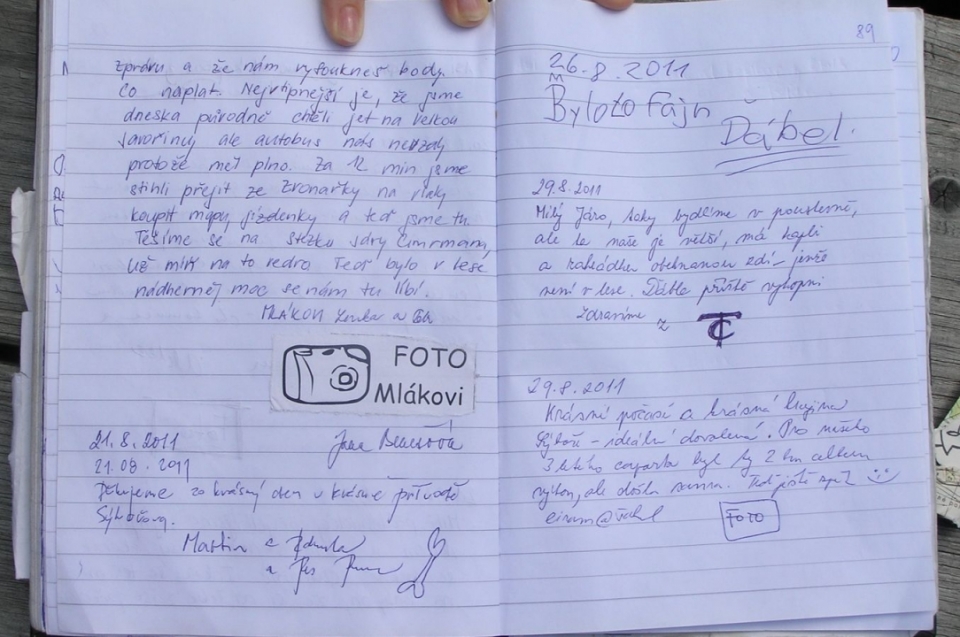 zprávu a že nám vyfoukneš body.
Co naplat. Nejvtipnější je, že jsme
dneska původně chtěli jet na Velkou
Javořinu, ale autobus nás nevzal,
protože měl plno. Za 12 min jsme
stihli přejít ze Zvonařky na vlaky
koupit mapy, jízdenky a teď jsme tu.
Těšíme se na stezku Járy Cimrmana,
na to vedro. Teď bylo v lese
nádherně, moc se nám tu líbí.
MLÁKOVI Lenka a
FOTO
Mlákovi
21.8.2011
21.08.2011
Děkujeme za krásný den v krásné přírodě
Sýkořova.
Martin a Zdenka
a Pes
89
26.8.2011
Bylo to Fajn
Ďábel.
29.8.2011
Milý Járo, taky bydlíme v poustevně,
ale ta naše je větší, má kapli
a zahrádku obehnanou zdí – jenže
není v lese. Ďábla příště vykopni
zdravíme z TC
29.8.2011
Krásné počasí a krásná krajina
Sýkoře – ideální dovolená. Pro našeho
3 letého caparta byly ty 2 km celkem
výkon, ale došla sama. Teď ještě zpět
FOTO